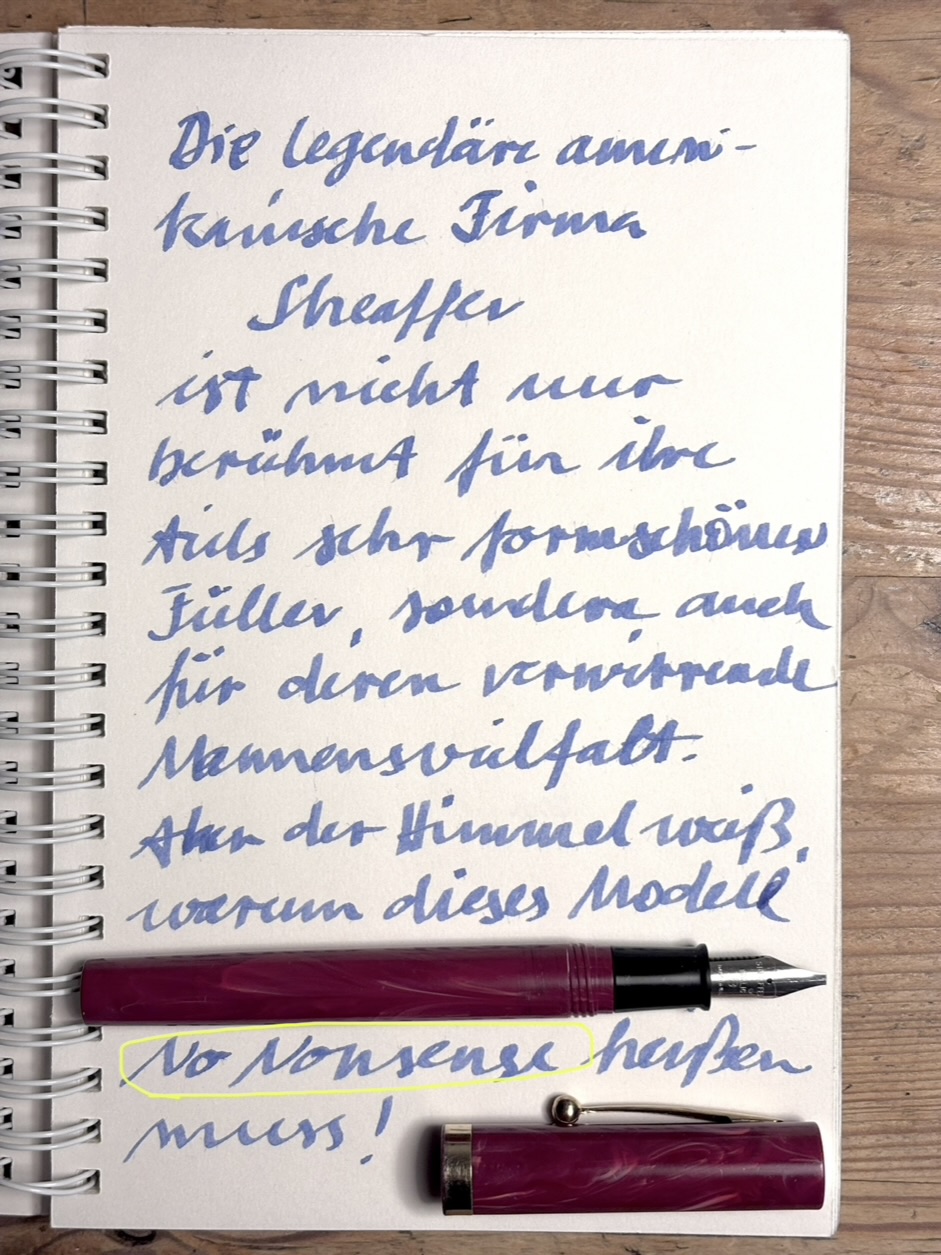 Die legendäre ameri-
kanische Firma
Sheaffer
ist nicht nur
berühmt für ihre
teils sehr formschönen
Füller, sondern auch
für deren verwirrende
Namensvielfalt.
Aber der Himmel weiß,
warum dieses Modell
No Nonsense heißen
muss!